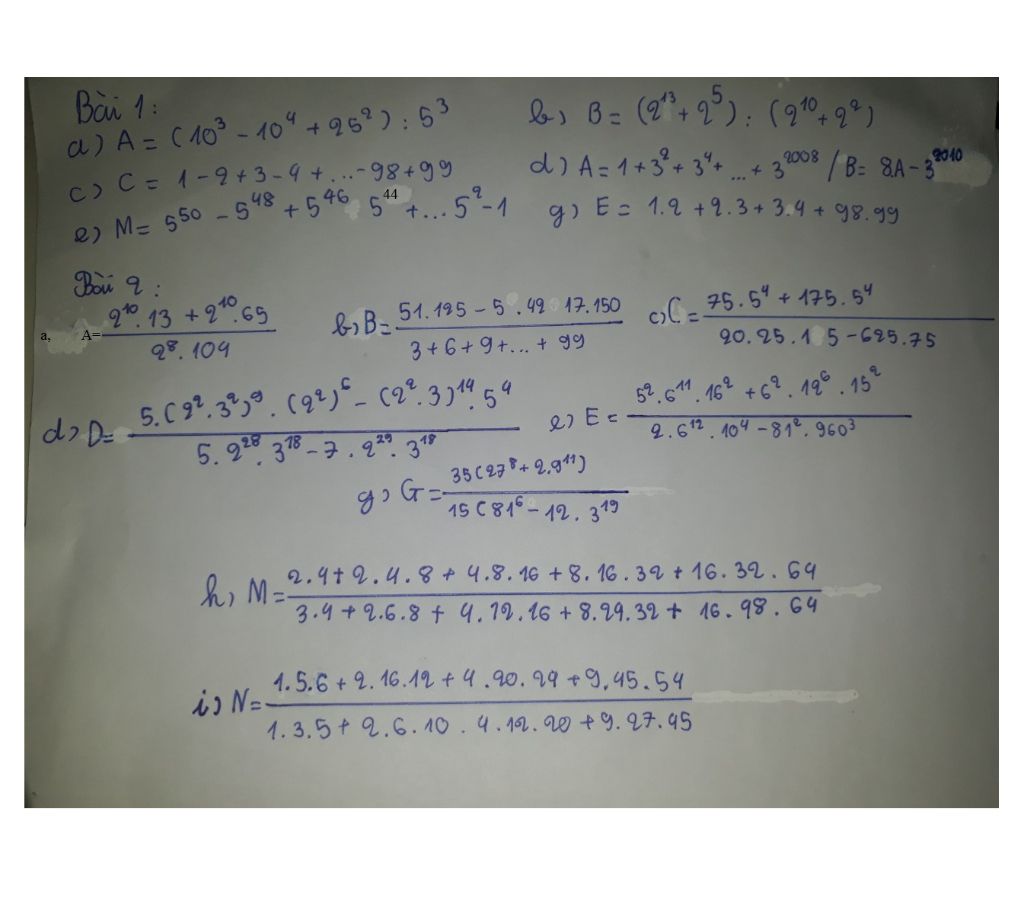 Bài 1:
a) A = (10³ - 10⁴ + 25²) : 5³ b) B = (2¹³ + 2⁵) : (2¹⁰ + 2²)
c) C = 1 - 2 + 3 - 4 + ... - 98 + 99 d) A = 1 + 3² + 3⁴ + ... + 3²⁰⁰⁸ / B = 8A - 3²⁰¹⁰
e) M = 5⁵⁰ - 5⁴⁸ + 5⁴⁶ 5⁴⁴ + ... 5² - 1 g) E = 1.2 + 2.3 + 3.4 + 98.99
Bài 2:
a, A = (2¹⁰.13 + 2¹⁰.65) / (2⁸.104) b, B = (51.125 - 5.42 17.150) / (3 + 6 + 9 + ... + 99) c, C = (75.5⁴ + 175.5⁴) / (20.25.1 5 - 625.75)
d) D = (5.(2².3²)⁹.(2²)⁶ - (2².3)¹⁴.5⁴) / (5.2²⁸.3¹⁸ - 7.2²⁹.3¹⁸) e) E = (5².6¹¹.16² + 6².12⁶.15²) / (2.6¹².10⁴ - 81².960³)
g) G = (35(27⁸ + 2.9¹¹)) / (15(81⁶ - 12.3¹⁹)
h) M = (2.4 + 2.4.8 + 4.8.16 + 8.16.32 + 16.32.64) / (3.4 + 2.6.8 + 4.12.16 + 8.24.32 + 16.98.64)
i) N = (1.5.6 + 2.16.12 + 4.20.24 + 9.45.54) / (1.3.5 + 2.6.10 . 4.12.20 + 9.27.45)